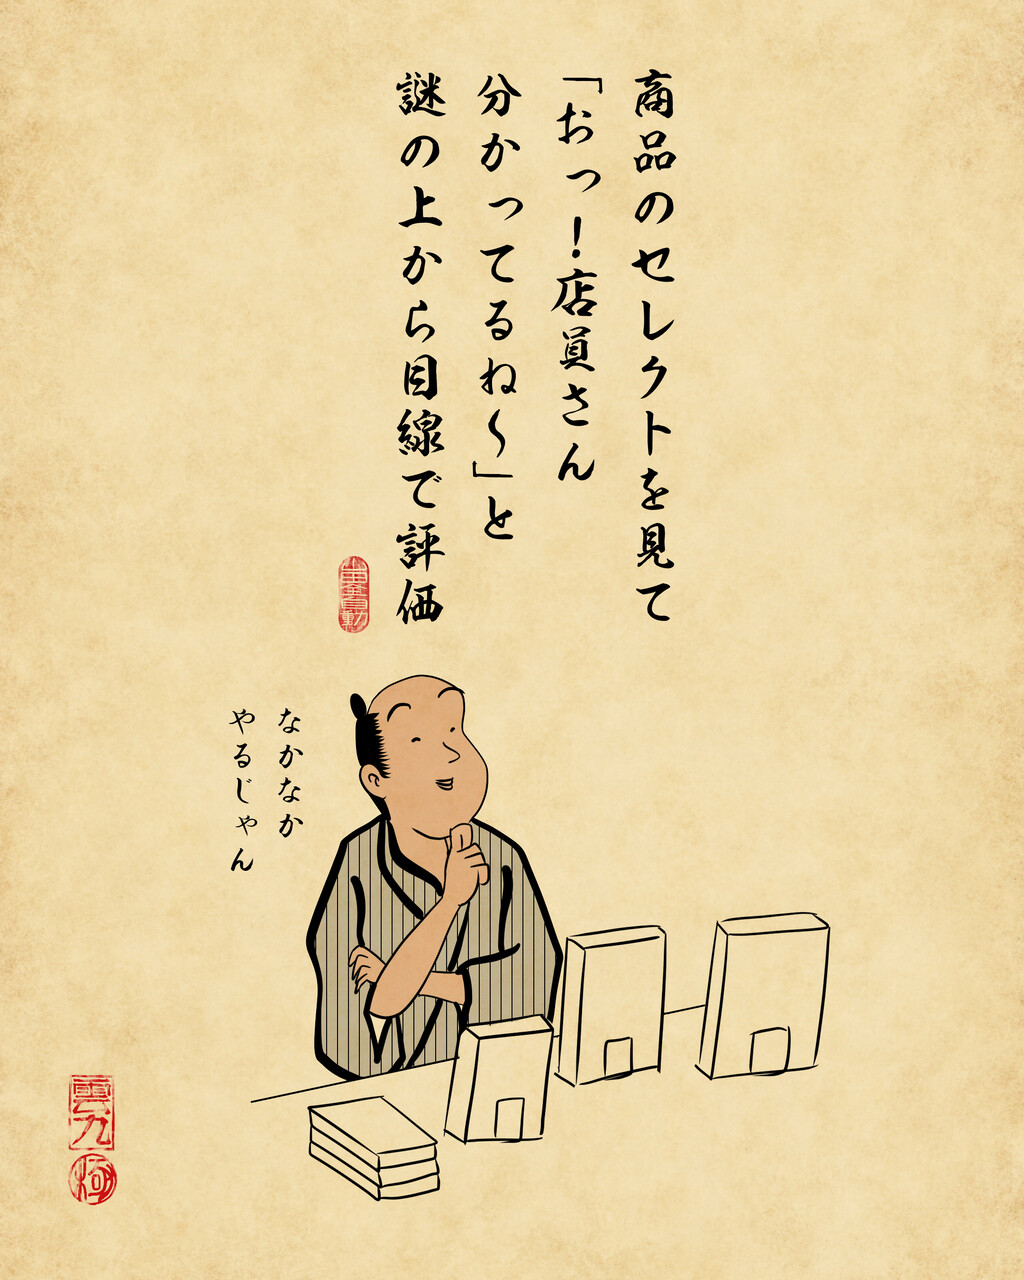 商品のセレクトを見て
「おっ！店員さん
分かってるね〜」と
謎の上から目線で評価
なかなか
やるじゃん